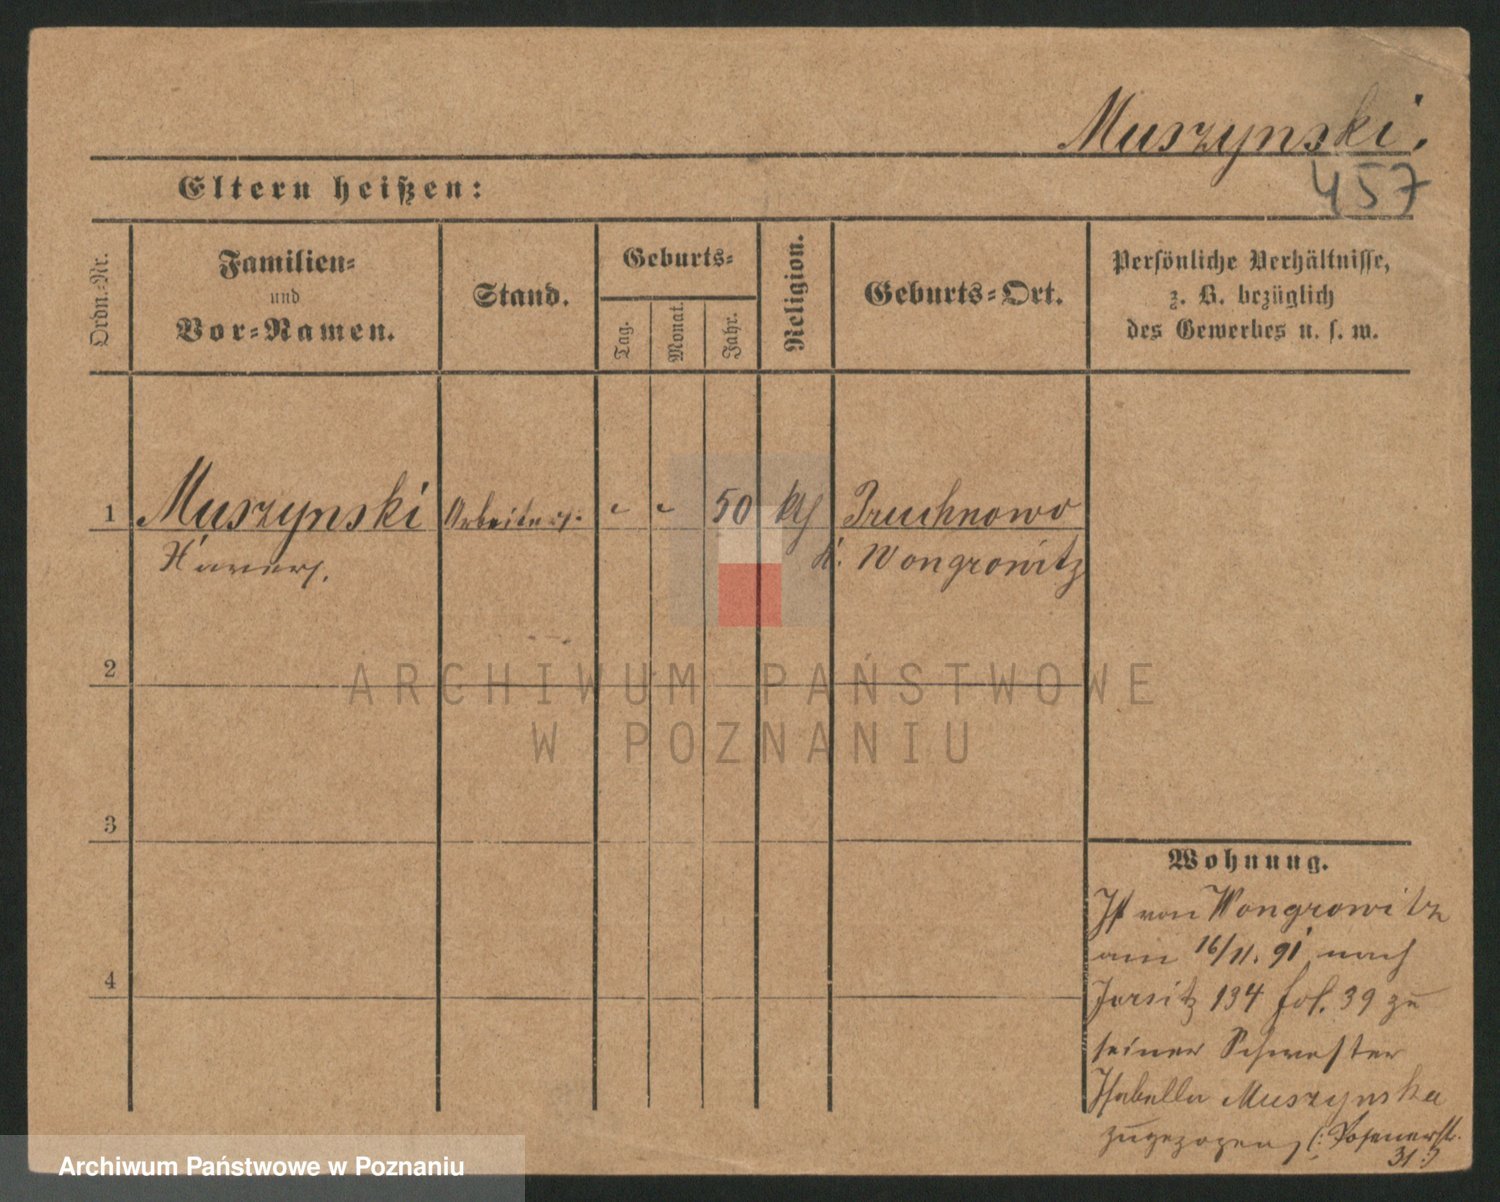 Muszynski.
457
Eltern heißen:
Ordn.-Nr.
Familien-
und
Vor-Namen.
Stand.
Geburts-
Tag.
Monat.
Jahr.
Religion.
Geburts-Ort.
Persönliche Verhältnisse,
z. B. bezüglich
des Gewerbes u. s. w.
1 Muszynski Arbeiter 50 kth
K. Wongrowitz
2
3
4
Wohnung.
Ist von Wongrowitz
am 16/11. 91 nach
Jersitz 134 fol. 39 zu
seiner Schwester
Isabella Muszynska
zugezogen (: Posenerstr.
31 :)
ARCHIWUM PAŃSTWOWE
W POZNANIU
Archiwum Państwowe w Poznaniu